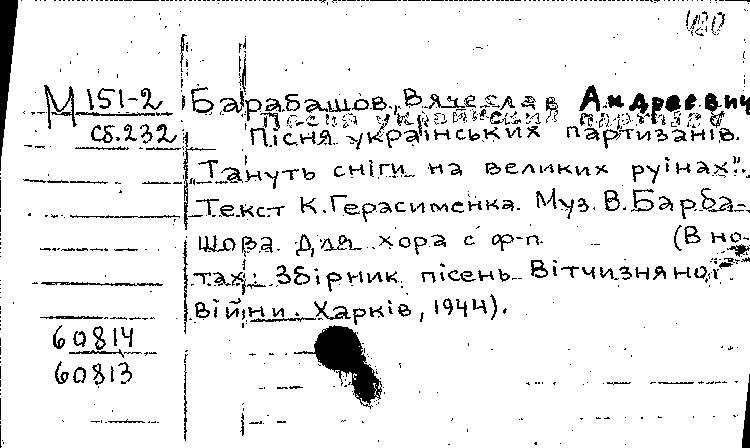 480
М 151-2 Барабашов, Вячеслав Андреевич
сб.232 Пісня українських партизанів.
„Тануть сніги на великих руінах".
Текст К.Герасименка. Муз. В.Барба-
шова. Для хора с ф-п. (В но-
тах: Збірник пісень Вітчизняної
війни. Харків, 1944).
60814
60813